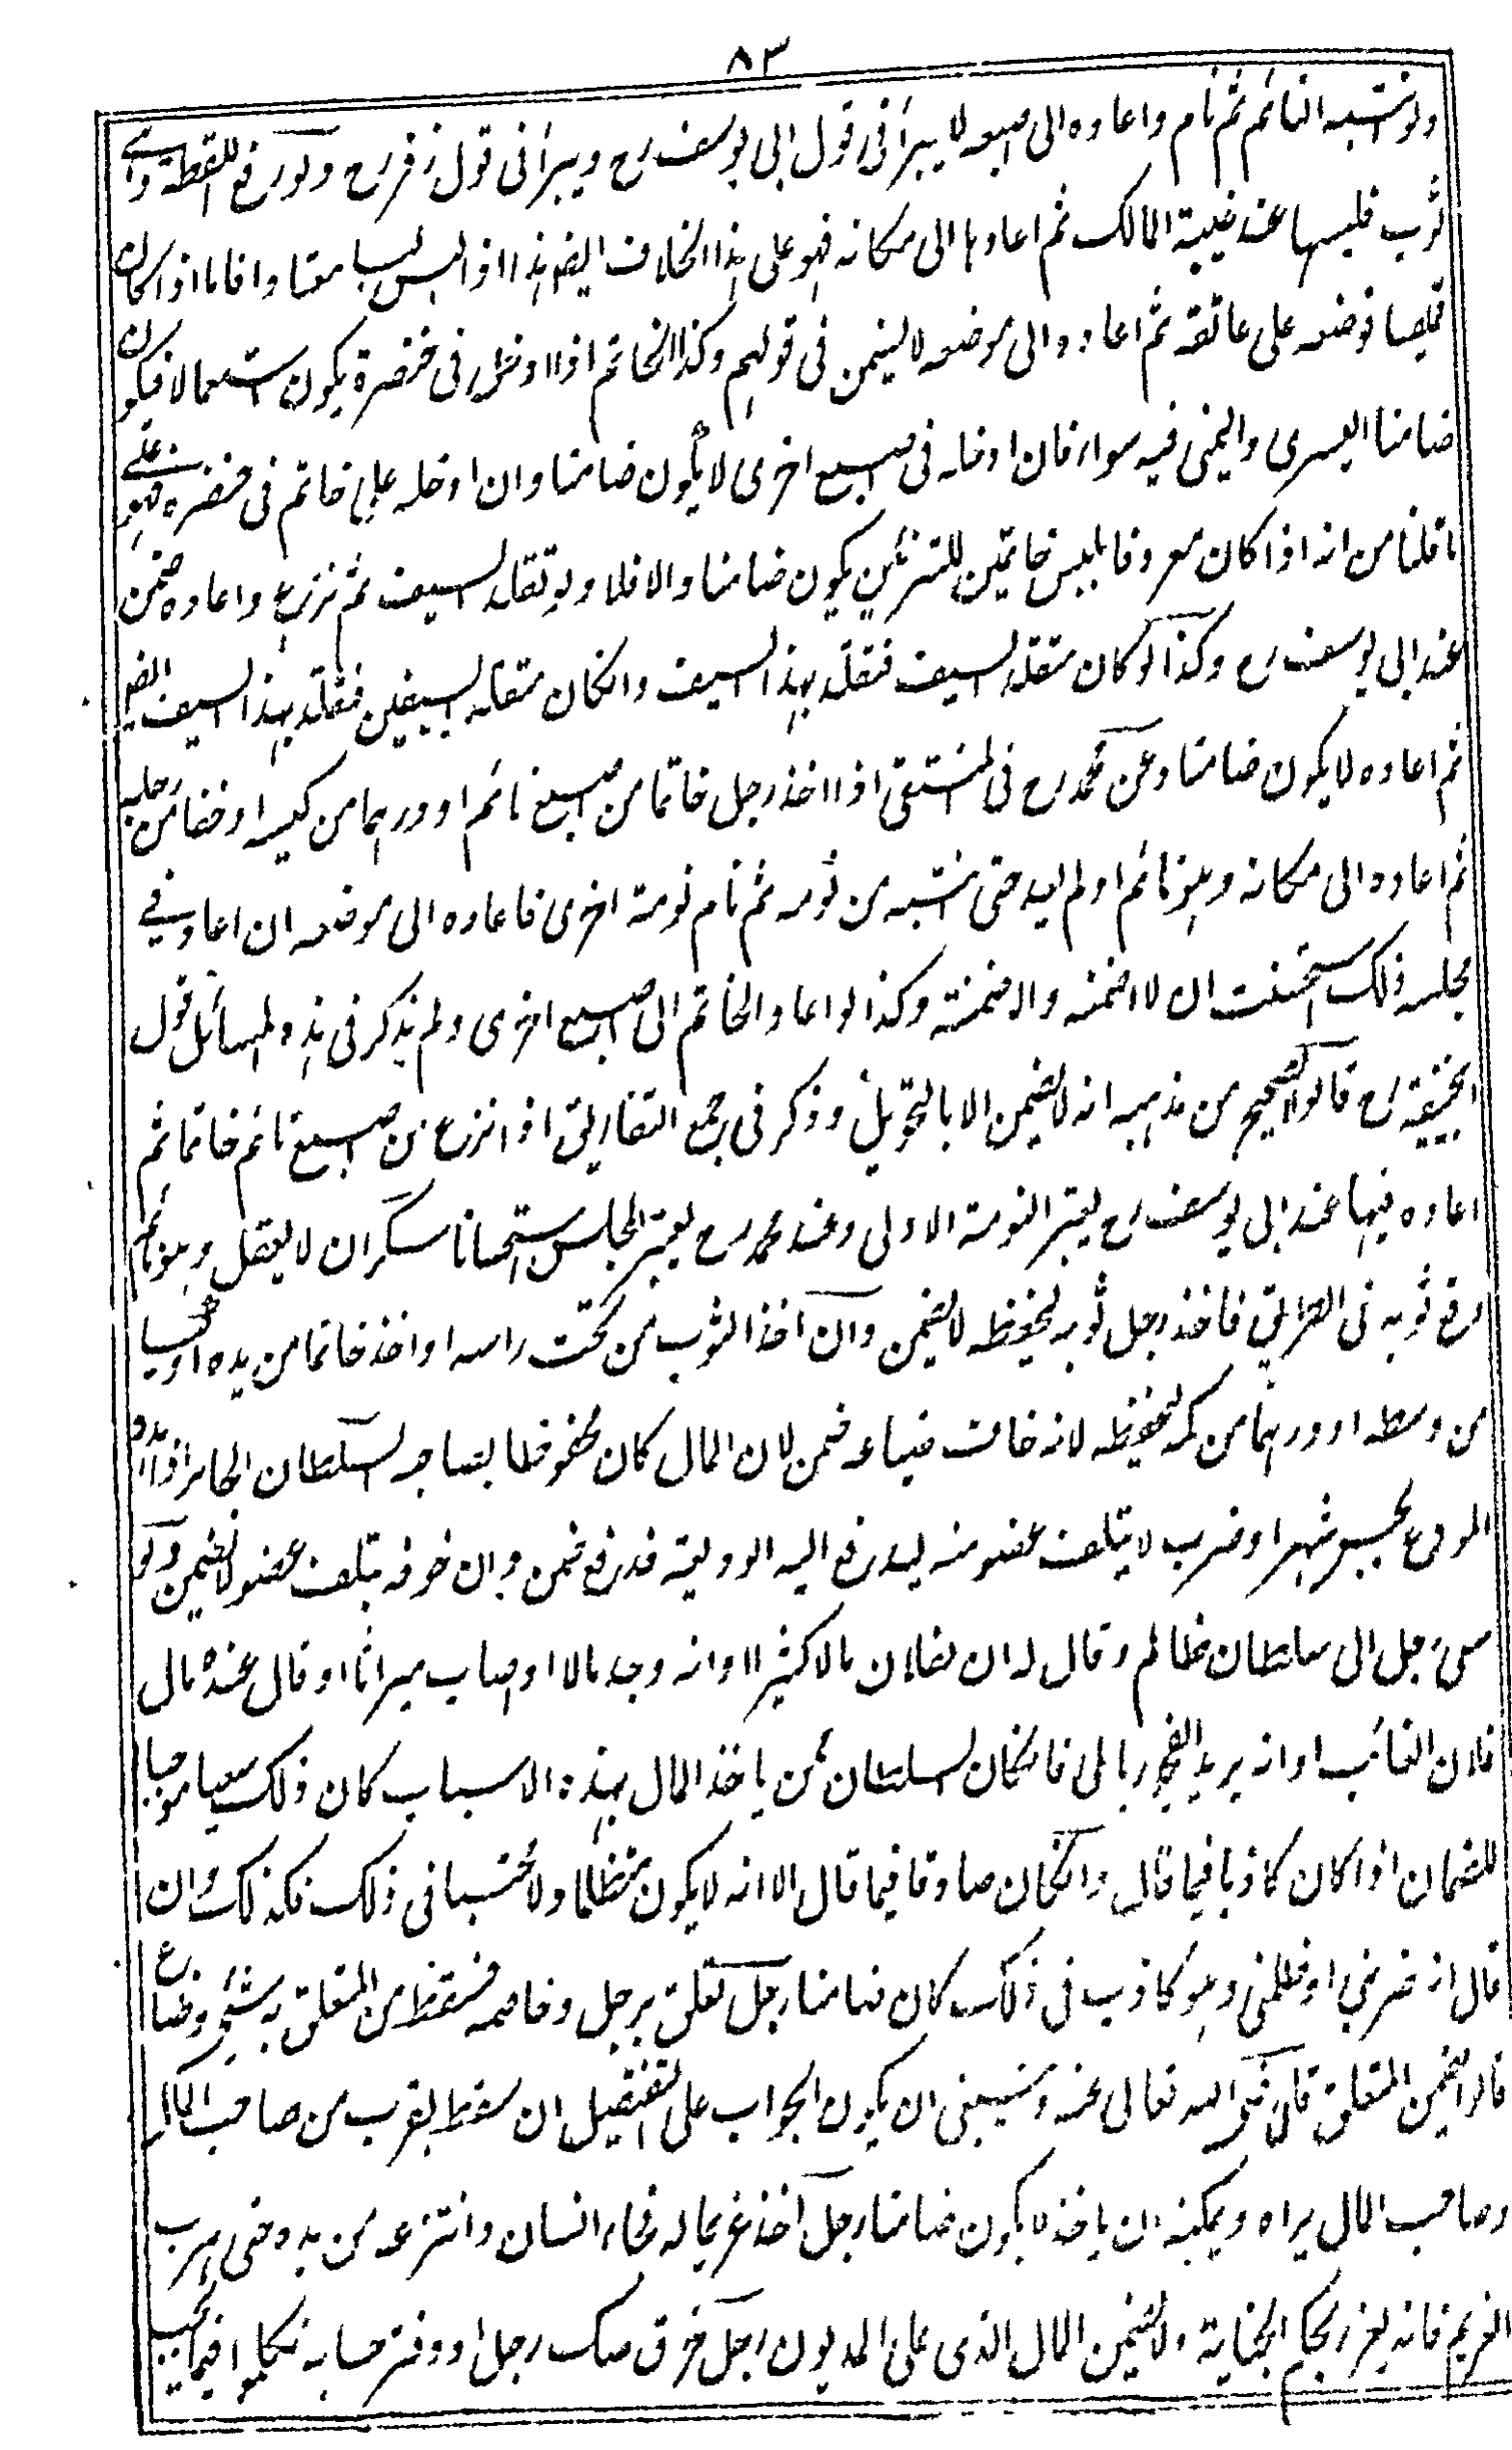 ٨٣
ولو انتبه النائم ثم نام واعاده الى اصبعه لا يبرأ فى قول ابى يوسف رح ويبرأ فى قول زفر رح ولو رفع اللقطة وهى
ثوب فلبسها عند غيبة المالك ثم اعادها الى مكانه فهو على هذا الخلاف ايضا هذا اذا لبس لبسا معتادا فاما اذا كان
قميصا فوضعه على عاتقه ثم اعاده الى موضعه لا يضمن فى قولهم وكذا الخاتم اذا ادخل فى خنصره يكون استعمالا فيكون
ضامنا اليسرى واليمنى فيه سواء فان ادخله فى اصبع اخرى لا يكون ضامنا وان ادخله على خاتم فى خنصره فهو على
ما قلنا من انه اذا كان معروفا بلبس خاتمين للتزين يكون ضامنا والا فلا ولو تقلد السيف ثم نزع واعاده ضمن
عند ابى يوسف رح وكذا لو كان متقلد السيف فتقلد بهذا السيف وانكان متقلد السيفين فتقلد بهذا السيف ايضا
ثم اعاده لا يكون ضامنا وعن محمد رح فى المنتقى اذا اخذ رجل خاتما من اصبع نائم او درهما من كيسه او خفا من رجليه
ثم اعاده الى مكانه وهو نائم او لم يعد حتى انتبه من نومه ثم نام نومة اخرى فاعاده الى موضعه ان اعاد فى
مجلسه ذلك استحسنت ان لا اضمنه والا ضمنته وكذا لو اعاد الخاتم الى اصبع اخرى ولم يذكر فى هذه المسائل قول
ابيحنيفة رح قالوا الصحيح من مذهبه انه لا يضمن الا بالتحويل وذكر فى جمع التفاريق اذا نزع من اصبع نائم خاتما ثم
اعاده فيها عند ابى يوسف رح يعتبر النومة الاولى وعند محمد رح يعتبر المجلس استحسانا سكران لا يعقل وهو نائم
وقع ثوبه فى الطريق فاخذ رجل ثوبه ليحفظه لا يضمن وان اخذ الثوب من تحت راسه او اخذ خاتما من يده او كيسا
من وسطه او درهما من كمه ليحفظه لانه خاف ضياعه ضمن لان المال كان محفوظا بصاحبه السلطان الجائر اذا هدد
المودع بحبس شهر او ضرب لا يتلف عضو منه ليدفع اليه الوديعة فدفع ضمن وان خوفه بتلف عضو لا يضمن ولو
سعى رجل الى سلطان ظالم وقال له ان لفلان مالا كثيرا او انه وجد مالا او اصاب ميراثا او قال عنده مال
فلان الغائب او انه يريد الفجور باهلى فانكان السلطان ممن ياخذ المال بهذه الاسباب كان ذلك سعيا موجبا
للضمان اذا كان كاذبا فيما قال وانكان صادقا فيما قال الا انه لا يكون متظلما ولا محتسبا فى ذلك فكذلك وان
قال انه ضربنى او ظلمنى وهو كاذب فى ذلك كان ضامنا رجل تعلق برجل وخاصمه فسقط من المتعلق به شئ وضاع
قالوا يضمن المتعلق قال رضى الله تعالى عنه وينبغى ان يكون الجواب على التفصيل ان سقط بقرب من صاحب المال
وصاحب المال يراه ويمكنه ان ياخذ لا يكون ضامنا رجل اخذ غريما له فجاء انسان وانتزعه من يده حتى هرب
الغريم فانه يعزر بحكم الجناية ولا يضمن المال الذى على المديون رجل خرق صك رجل او دفتر حسابه تكلموا فيما يجب